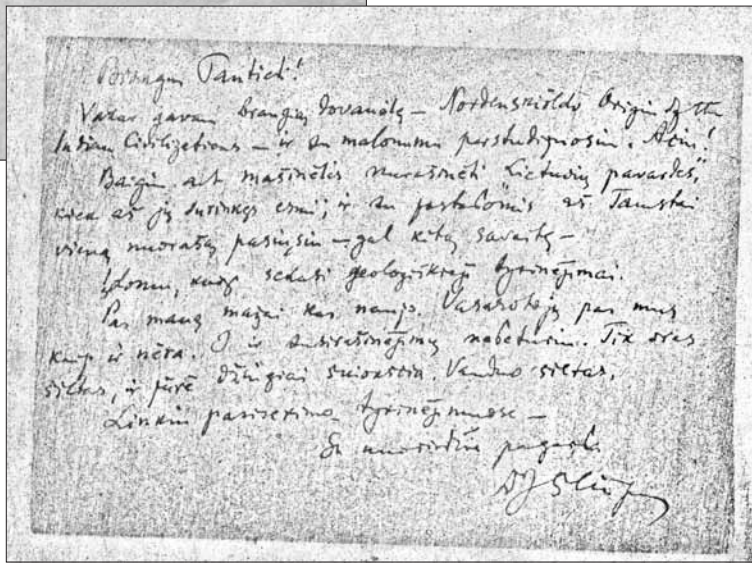 Brangus Tamista!
Vakar gavau brangią dovanėlę — Nordenskiöldo Origin of the
Indian Civilizations — ir su malonumu perstudijuosiu. Ačiū!
Baigiu ant mašinėlės nurašinėti Lietuvių pavardes,
kiek aš jų surinkęs esmi; ir su pastabomis aš Tamstai
vieną nuorašą pasiųsiu — gal kitą savaitę —
Įdomu, kaip sekasi geologiškieji tyrinėjimai.
Pas manę mažai kas naujo. Vasarotojų pas mus
kaip ir nėra. O ir susirašinėjimų nebeturiu. Tik oras
šiltas, ir jūrė džiugiai šniokščia. Vanduo šiltas.
Linkiu pasisekimo tyrinėjimuose —
Su nuoširdžia pagarba